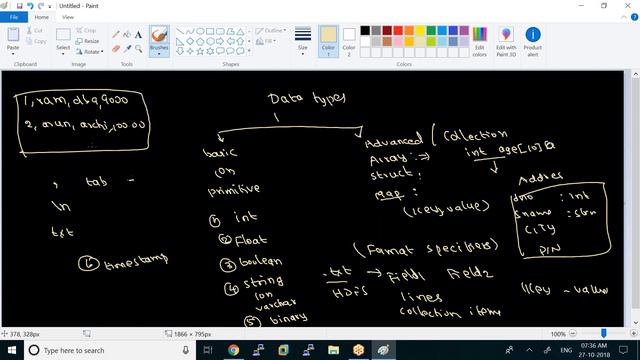 Untitled - Paint
File
Home
View
Paste
Select
Crop
Resize
Rotate
Brushes
Outline
Fill
Size
Color 1
Color 2
Edit colors
Edit with Paint 3D
Product alert
Clipboard
Image
Tools
Shapes
Colors
1, ram, dba, 9000
2, arun, archi, 10000
, tab -
\n
txt
⑥ timestamp
Data types
basic
(or)
primitive
① int
② Float
③ boolean
④ string
(or)
varchar
⑤ binary
Advanced / Collection
Array : →
int age[10]
struct :
map :
(key, value)
Addres
dno : int
sname : str
CITY
PIN
(Format specifiers)
.txt → Field1 Field2
HDFS
lines
collection items
key - value
378, 328px
1866 × 795px
100%
Type here to search
ENG
07:36 AM
27-10-2018